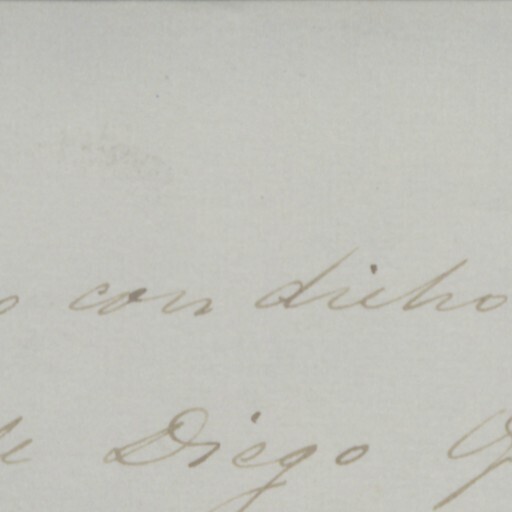 con dicho
de Diego